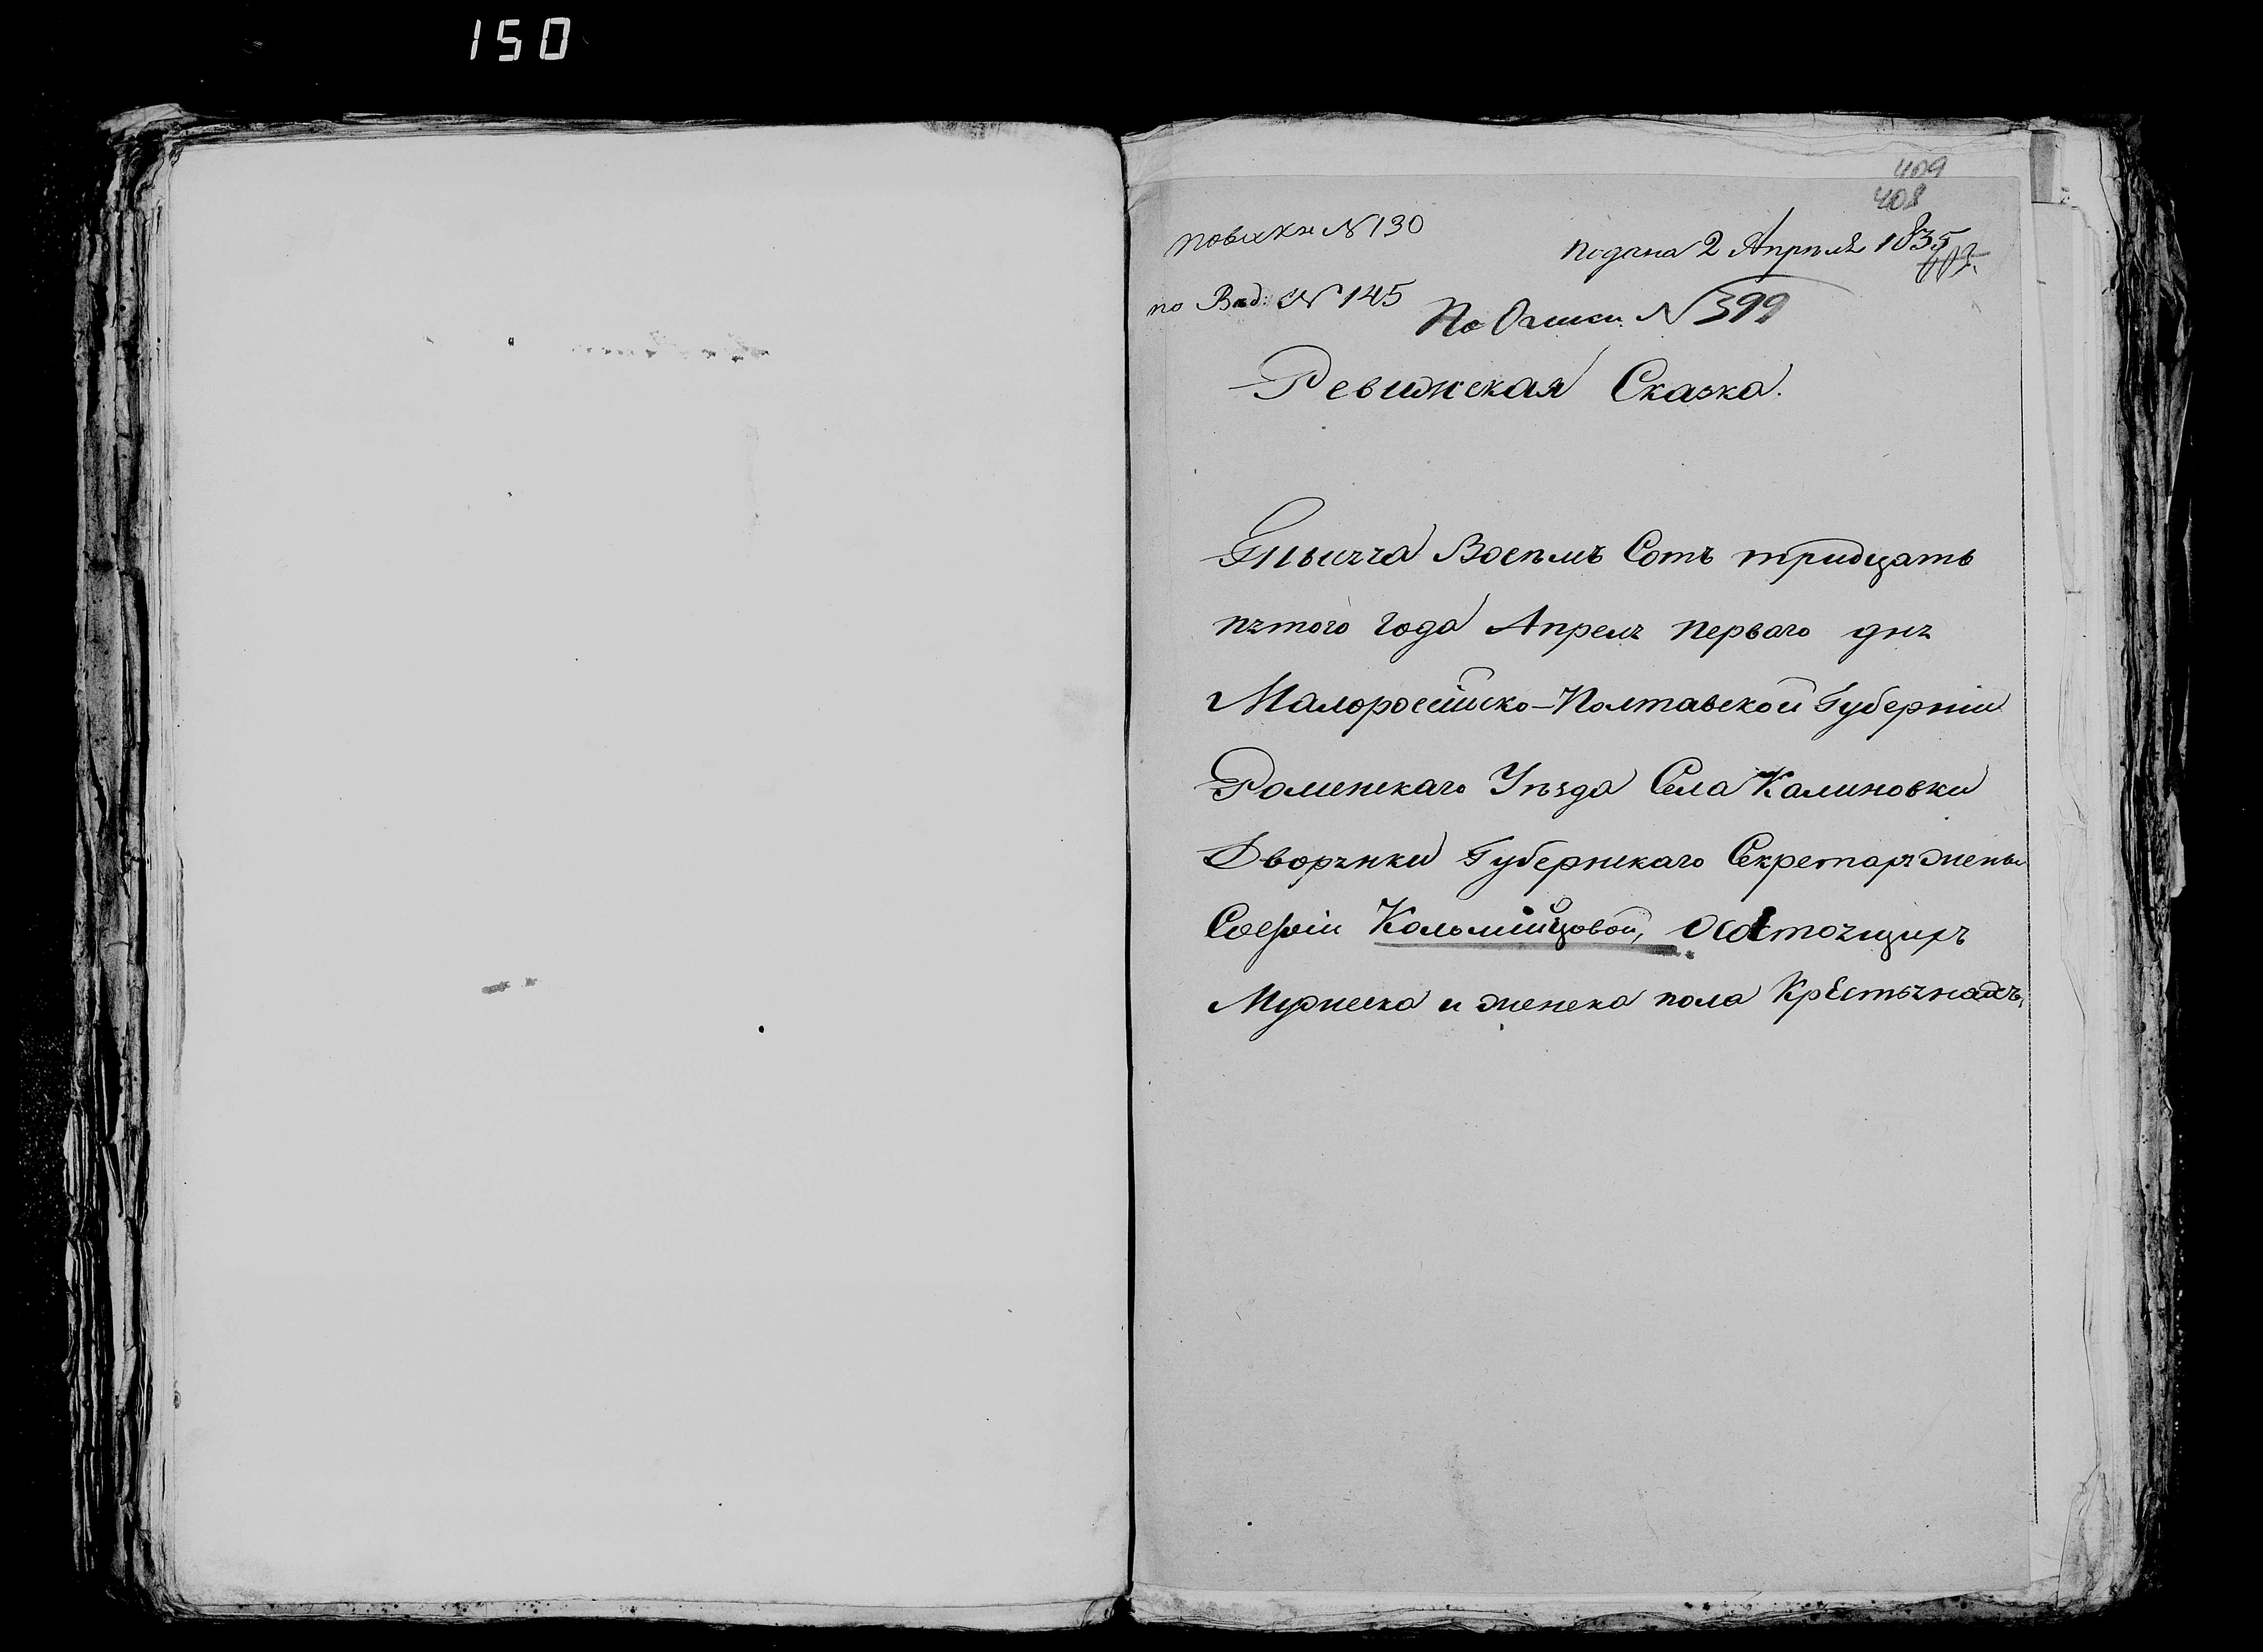 150
409
408
№ 130
подана 2 Апреля 1835
по Вѣд: № 145
По Описи № 399
Ревижская Сказка.
Тысяча Восемъ Сотъ тридцать
пятого года Апреля перваго дня
Малоросійско-Полтавской Губерніи
Роменскаго Уѣзда Села Калиновки
Дворянки Губернскаго Секретаря жены
Софіи Коломійцовой, о состоящихъ
Мужеска и женска пола Крестьянахъ,